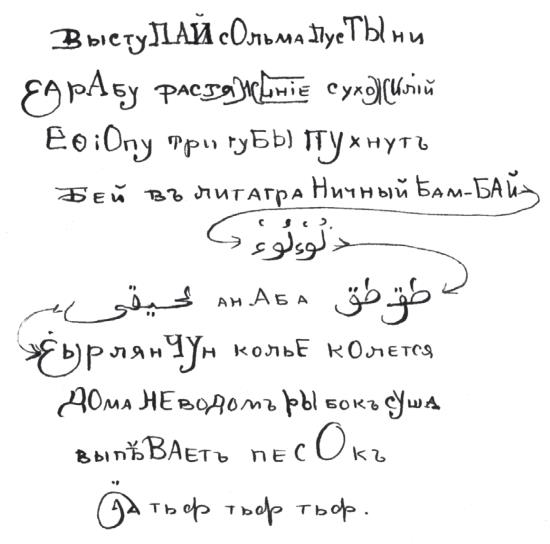 ВыстуПАЙ сОльмА ПусТЫни
ЕАрАбу растяЖЕнiЕ сухоЖИлiй
ЕѳiОпу три гуБЫ ПУхнутъ
БЕЙ въ литагра НичныЙ БАМ-БАЙ
لُؤلُؤ
طق طق анАбА
ЁырлянЧУн кольЕ колется
ДОмА НЕводомъ РЫбокъ сУшА
выпѣВАЕтъ песОкъ
тьфр тьфр тьфр.